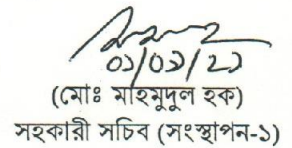 ০১/০৯/২১
(মোঃ মাহমুদুল হক)
সহকারী সচিব (সংস্থাপন-১)